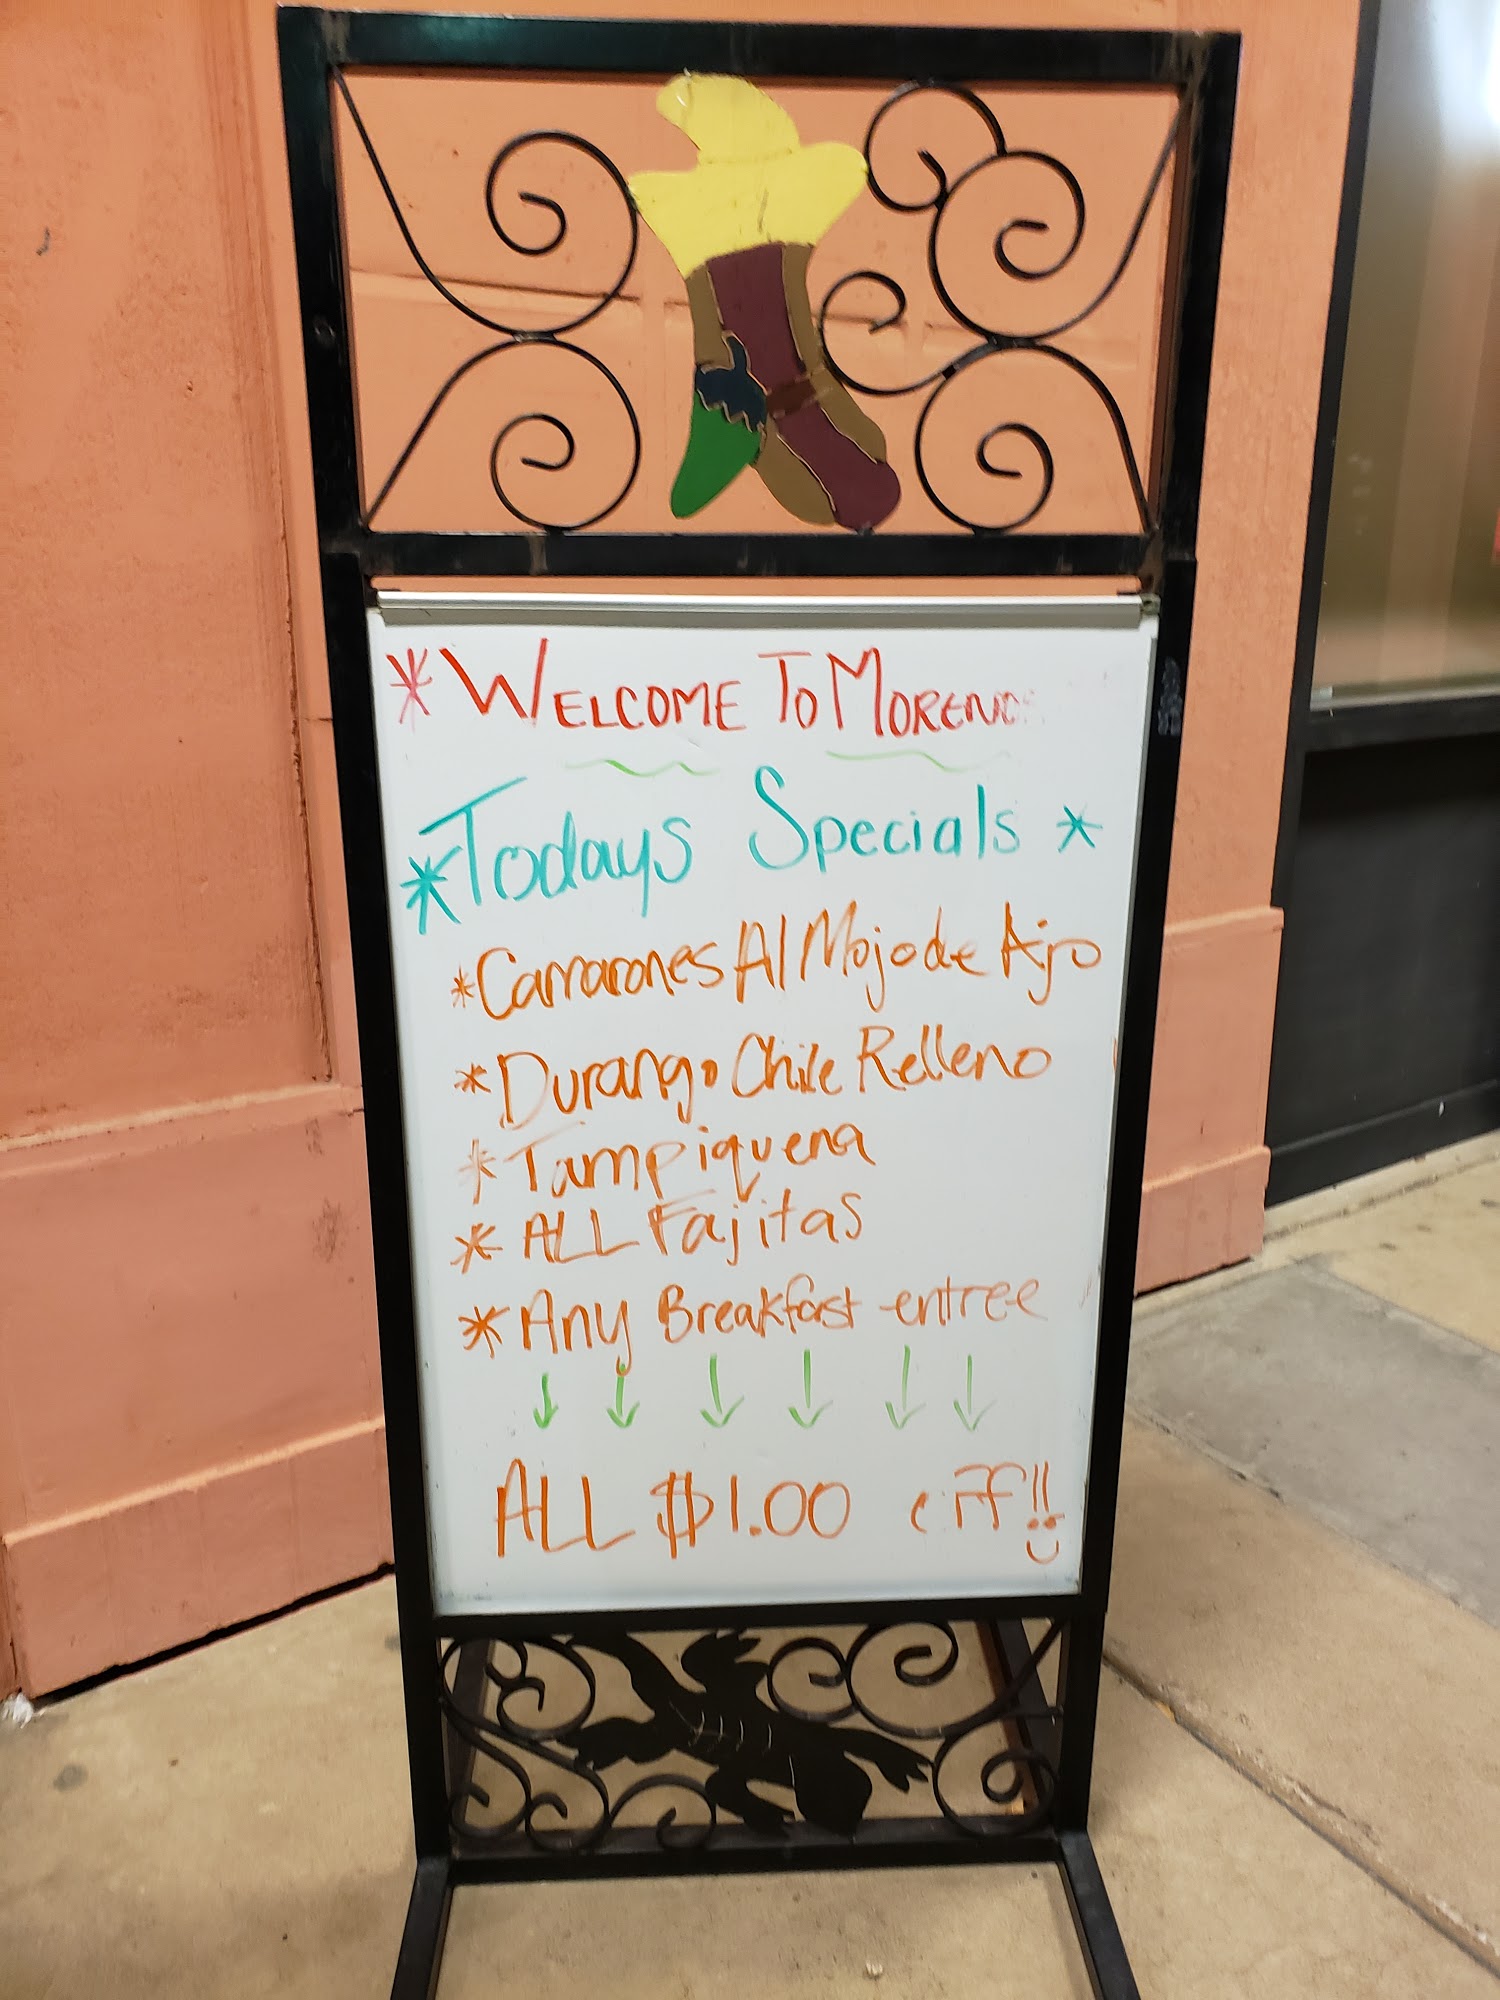 * WELCOME TO MORENO
*Todays Specials *
*Camarones Al Mojo de Ajo
*Durango Chile Relleno
*Tampiquena
*ALL Fajitas
*Any Breakfast entree
↓ ↓ ↓ ↓ ↓ ↓
ALL $1.00 off!!